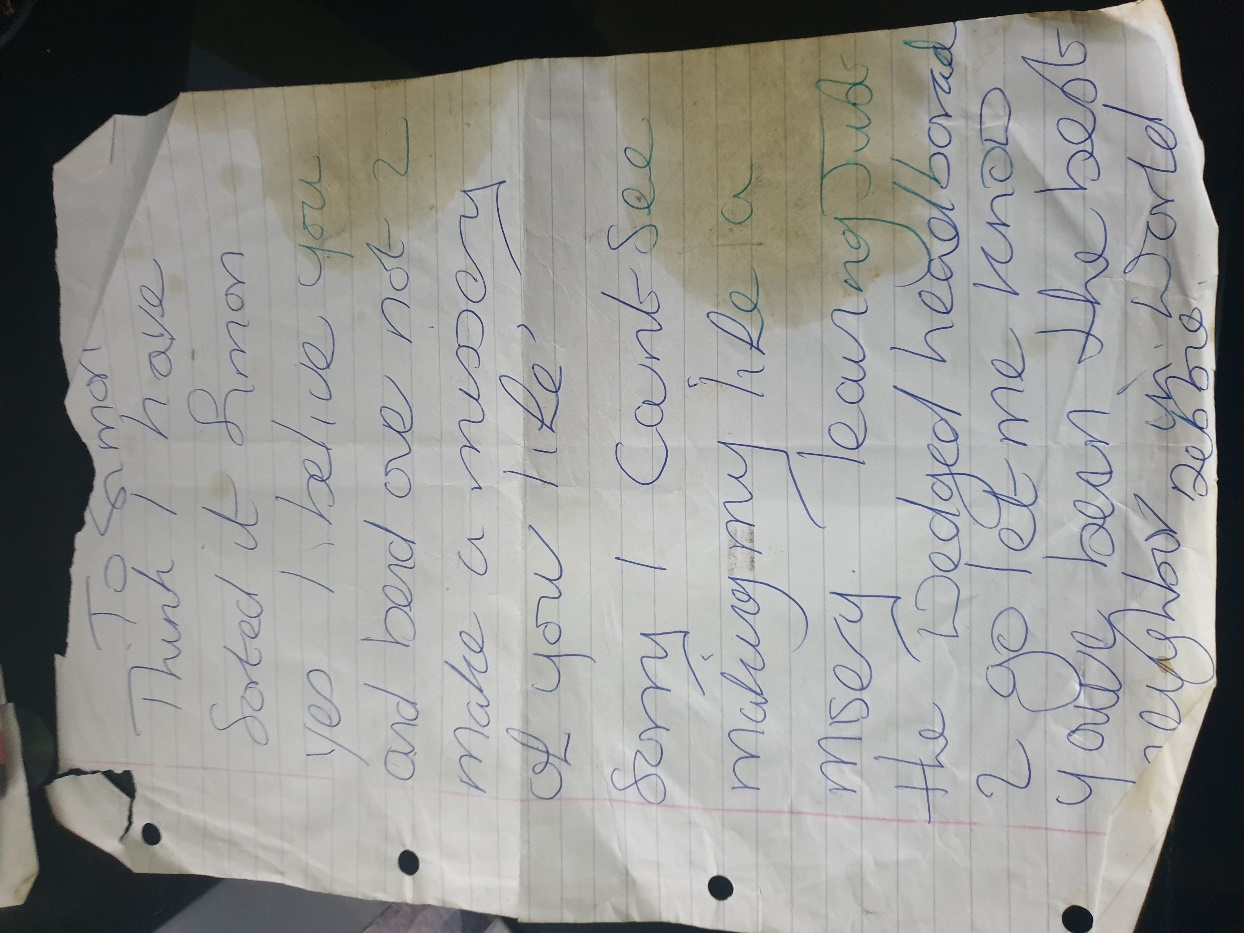 To Simon
Think I have
Sorted it Simon
yes I belive you
and bend ove not 2
make a missery
of you life
Sorry I cant See
making my life a
misery leaving Just
the Wedged headborad
2 go let me know
youve been the best
neyghbour in World
Debbie.